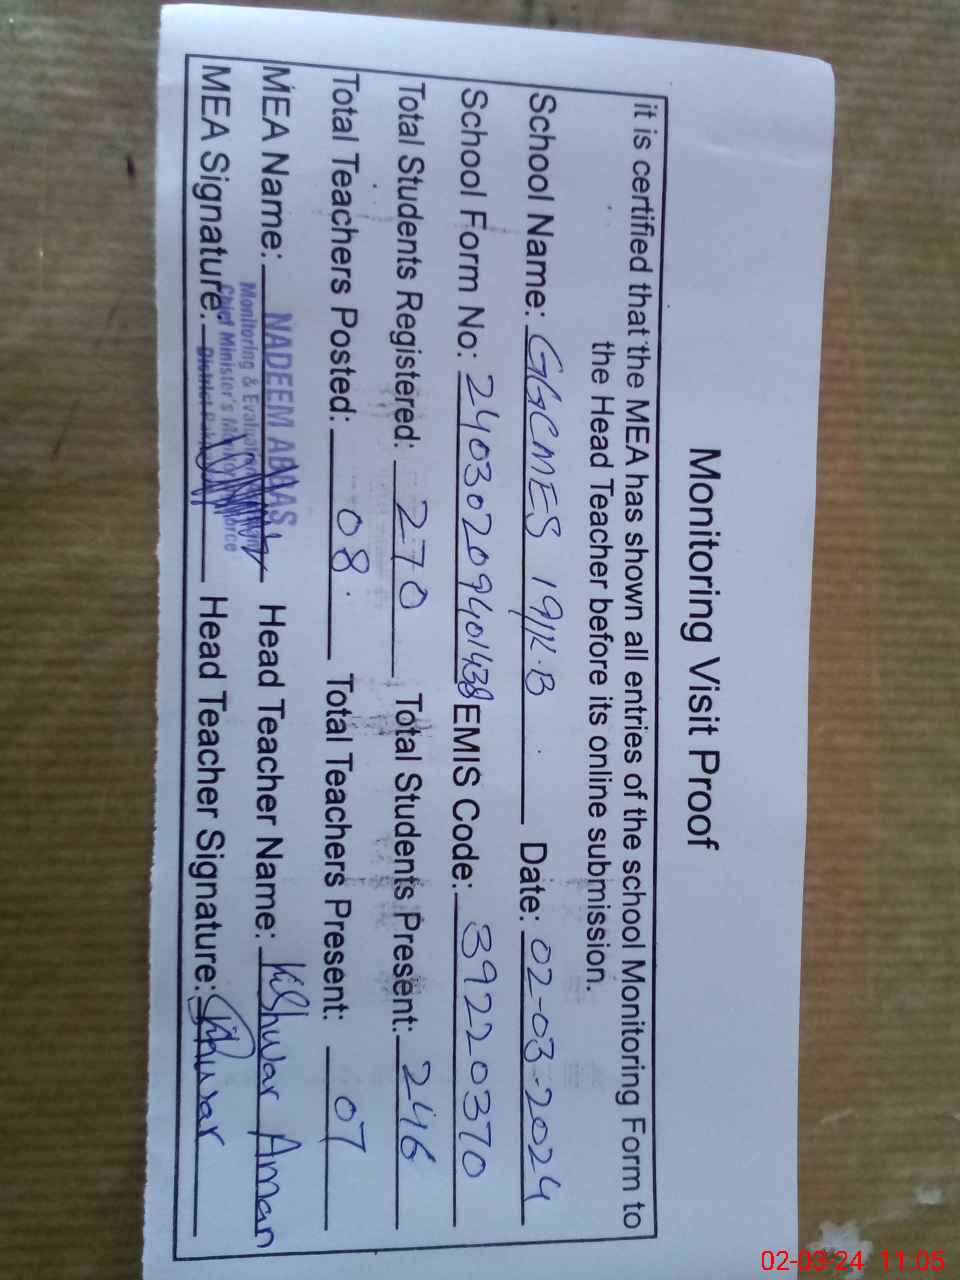 Monitoring Visit Proof
it is certified that the MEA has shown all entries of the school Monitoring Form to
the Head Teacher before its online submission.
School Name: GGCMES 19/K.B Date: 02-03-2024
School Form No: 24030209401438 EMIS Code: 39220370
Total Students Registered: 270 Total Students Present: 246
Total Teachers Posted: 08 Total Teachers Present: 07
MEA Name: NADEEM ABBAS Head Teacher Name: Kishwar Aman
Monitoring & Evaluation
MEA Signature: Chief Minister's Monitoring Force Head Teacher Signature: Kishwar
District
02-03-24 11:05